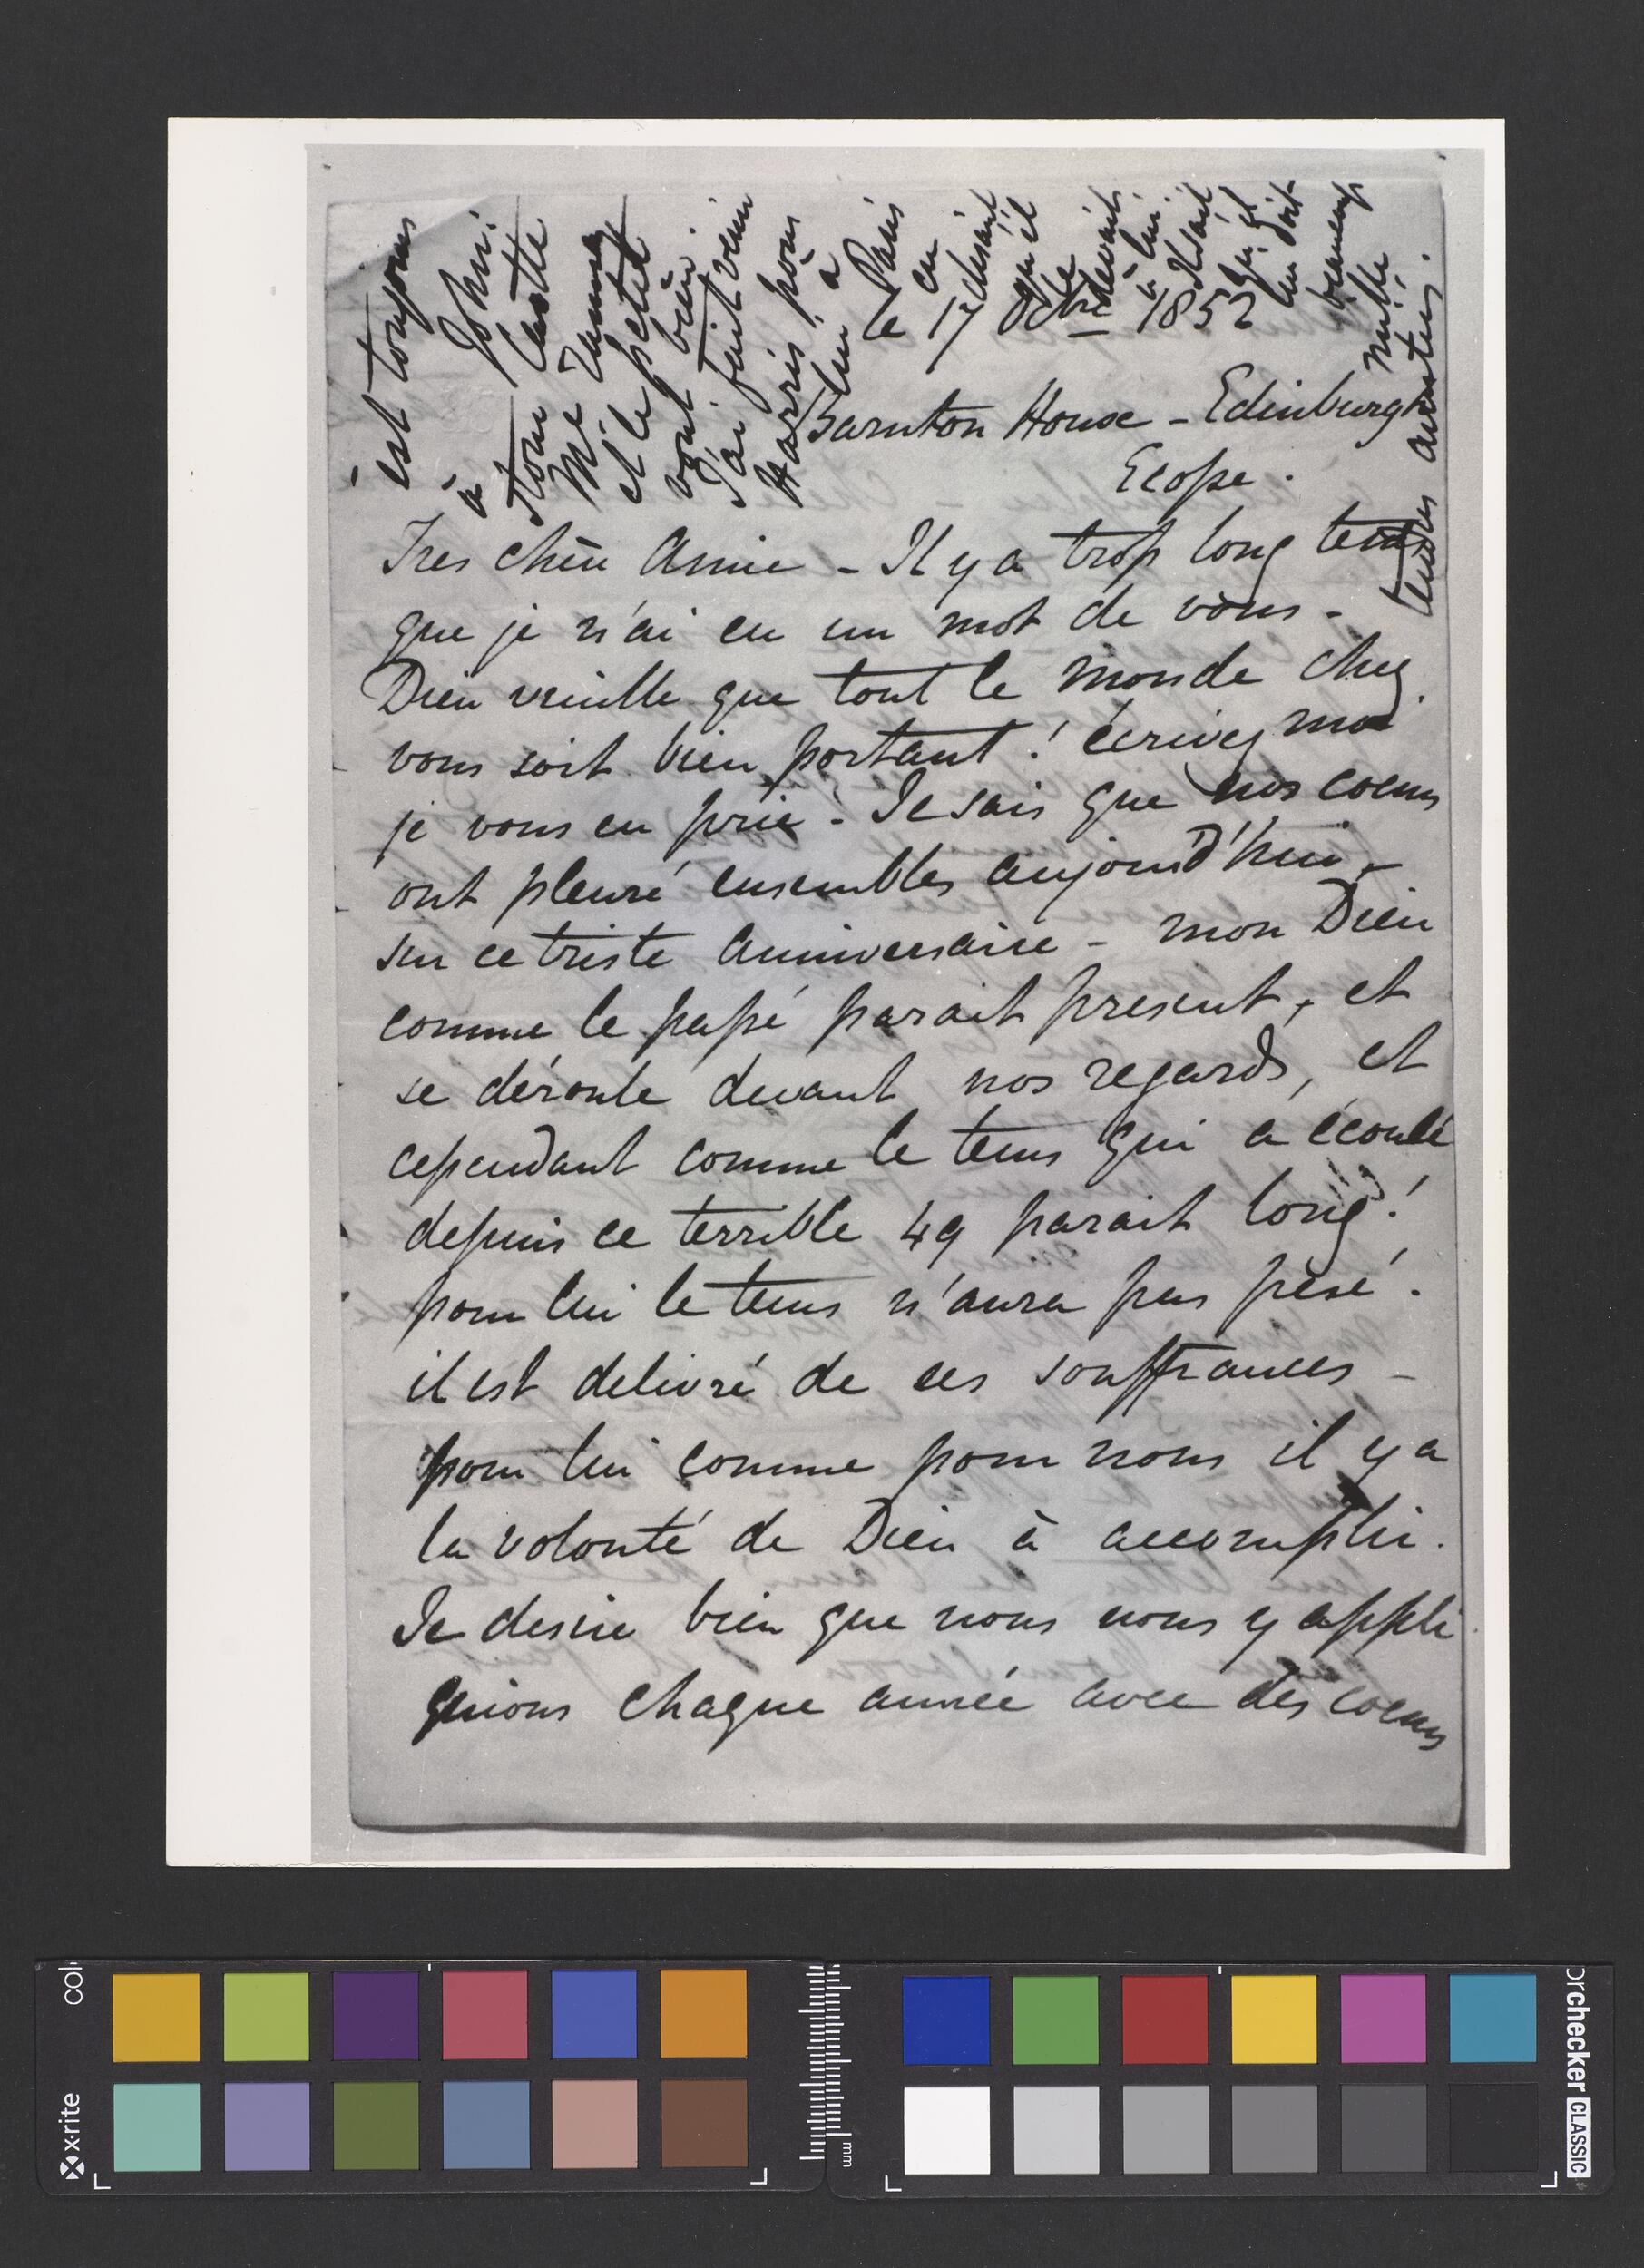 le 17 Octbre 1852
Barnton House - Edinburgh
Ecosse.
Tres chère Amie - Il y a trop long tems
que je n'ai eu un mot de vous -
Dieu veuille que tout le monde chez
vous soit bien portant! écrivez moi
je vous en prie! Je sais que nos coeurs
ont pleuré ensembles aujourd'hui -
sur ce triste anniversaire - mon Dieu
comme le passé parait present, et
se déroule devant nos regards, et
cependant comme le tems qui a écoulé
depuis ce terrible 49 parait long!
pour lui le tems n'aura pas pesé.
il est delivré de ses souffrances -
pour lui comme pour nous il y a
la volonté de Dieu à accomplir.
Je desire bien que nous nous y appli
quions chaque année avec des coeurs
est toujours
à John.
stone Castle
Me
et le petit
vont bien.
J'ai fait venir
Harris pour
lui à
Paris
en
disant
qu'il
le
devait
à lui.
Il sait
qu'il
lui doit
beaucoup
mille
tendres amitiés.
x-rite
colorchecker CLASSIC
mm